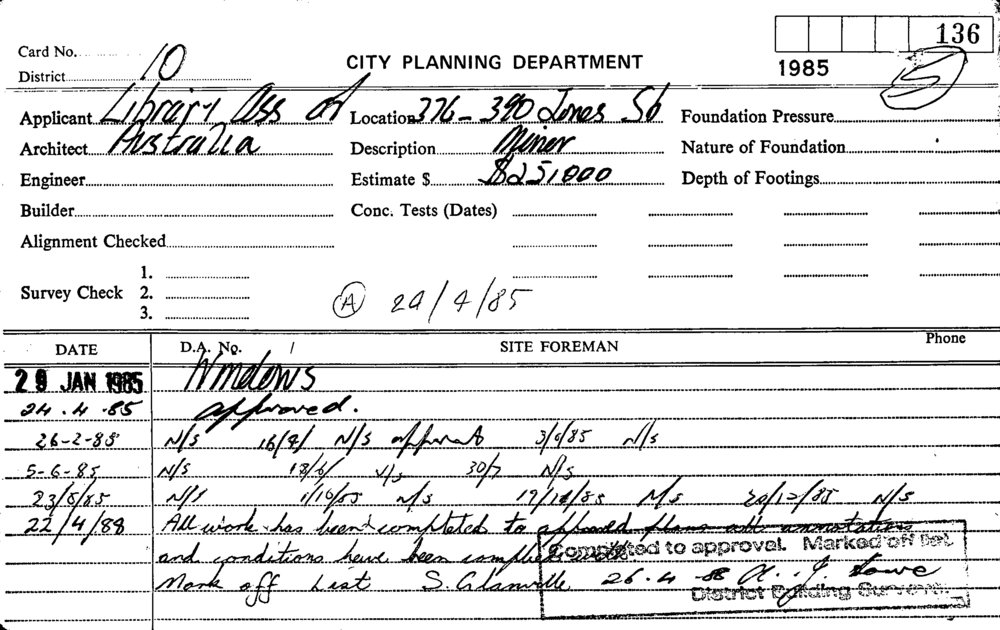 136
1985
5
Card No.
CITY PLANNING DEPARTMENT
District 10
Applicant Library Ass of Location 376-390 Jones St Foundation Pressure
Architect Australia Description Minor Nature of Foundation
Engineer Estimate $ $251,000 Depth of Footings
Builder Conc. Tests (Dates)
Alignment Checked
1.
Survey Check 2.
3.
A 24/4/85
DATE D.A. No. / SITE FOREMAN Phone
29 JAN 1985 Windows
24.4.85 approved.
26-2-85 N/S 16/4/ N/S approval 3/6/85 N/S
5-6-85 N/S 18/6/ N/S 30/7 N/S
23/8/85 N/S 1/10/85 N/S 19/11/85 N/S 20/12/85 N/S
22/4/88 All work has been completed to approved plans all annotations
and conditions have been complied with
Mark off List S. Glanville
Completed to approval. Marked off list.
26.4.88
District Building Surveyor